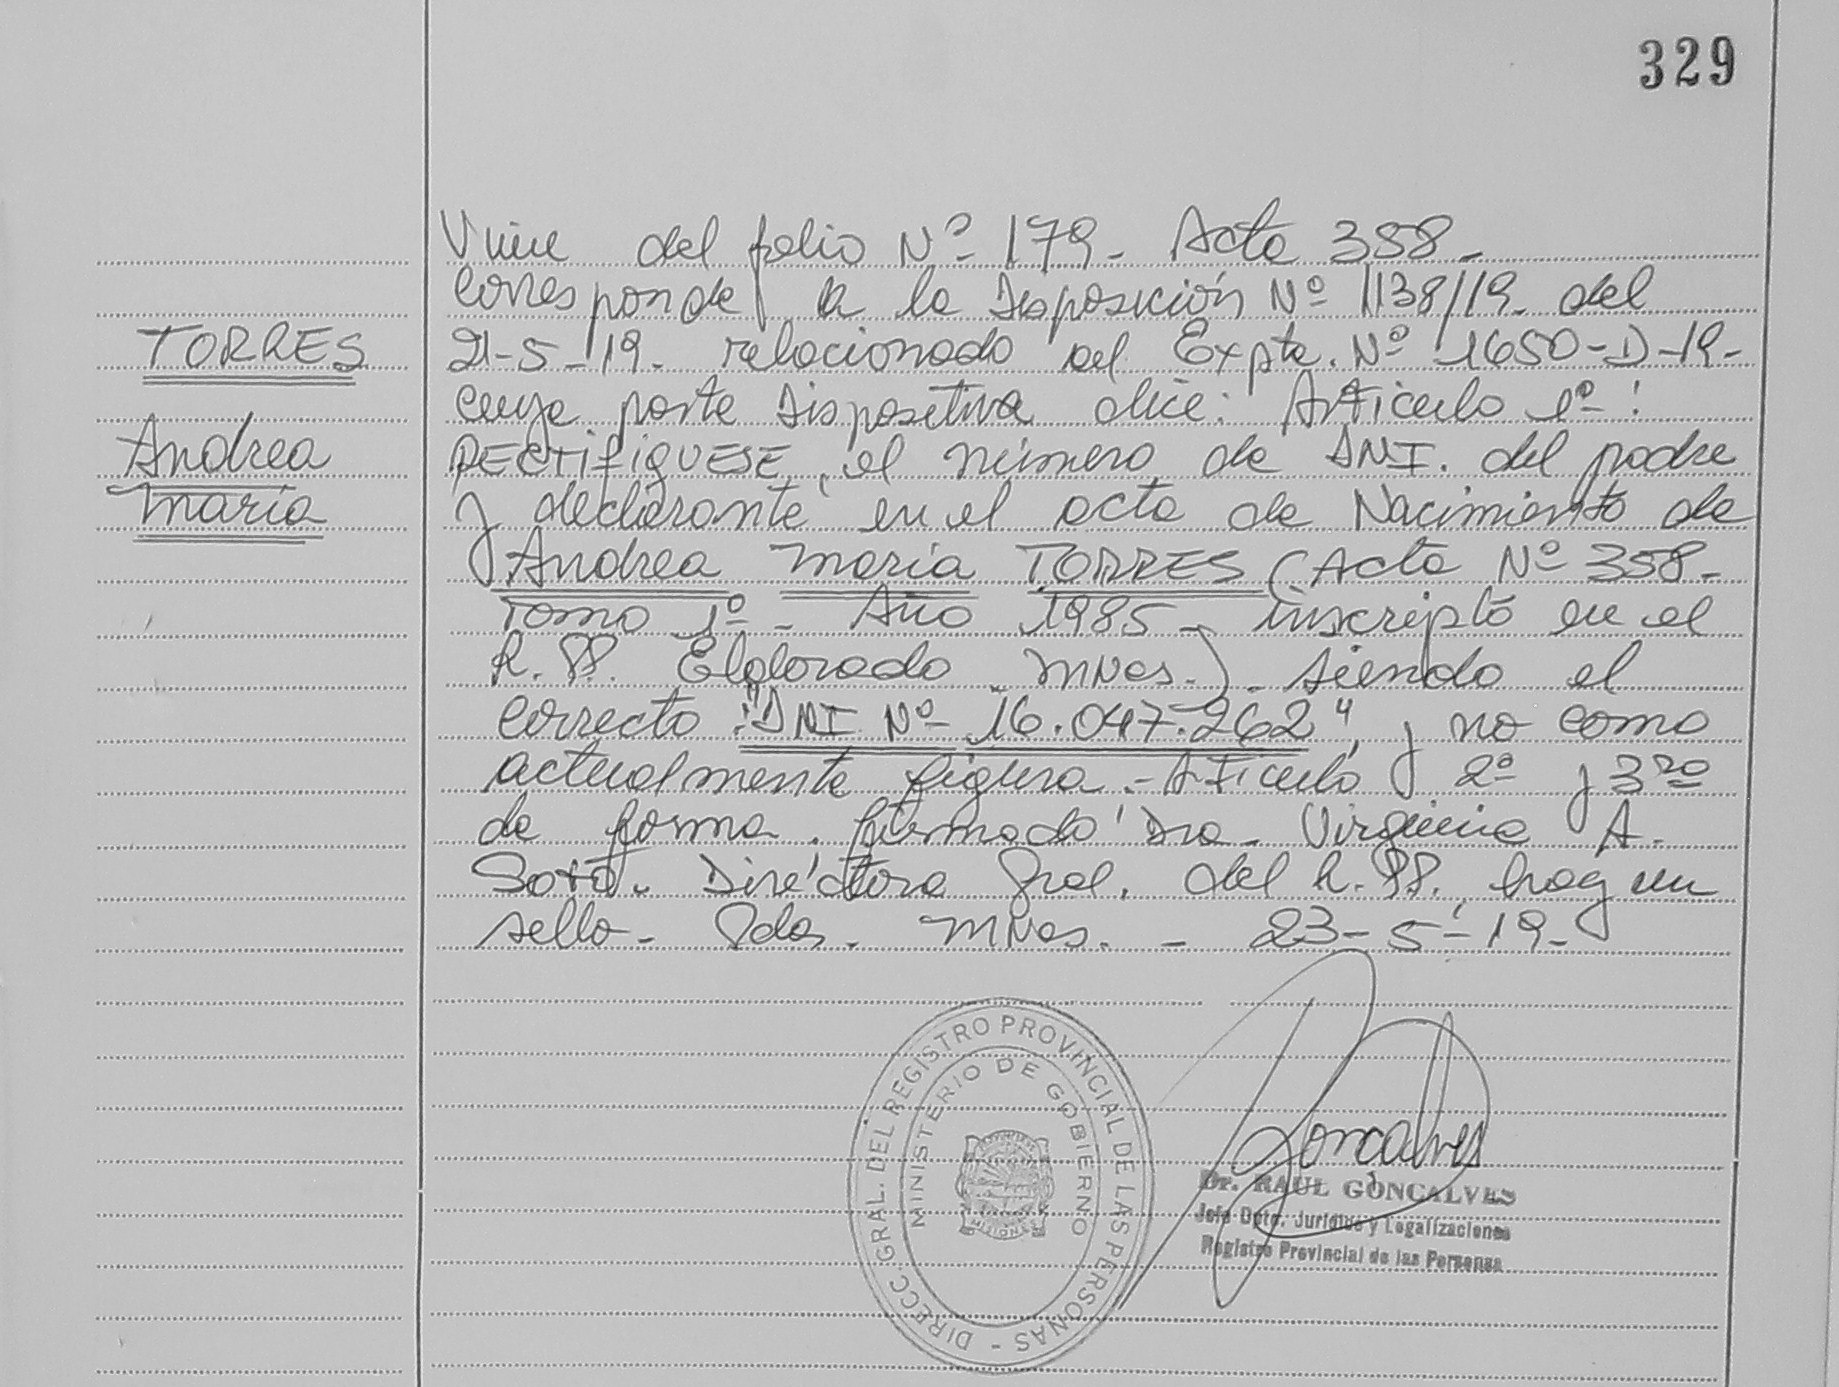 329
Viene del folio Nº 179- Acta 358-
corresponde a la Disposición Nº 1138/19- del
TORRES
21-5-19- relacionado al Expte. Nº 1650-D-19-
cuya parte Dispositiva dice: Artículo 1º:
Andrea
RECTIFIQUESE, el número de DNI. del padre
María
y declarante en el acta de Nacimiento de
Andrea María TORRES (Acta Nº 358-
Tomo 1º- Año 1985- inscripto en el
R.PP. Eldorado Mnes.)- siendo el
correcto: "DNI Nº 16.047.262", y no como
actualmente figura.- Artículo 2º y 3ro
de forma. firmado Dra- Virginia A.
Soto. Directora Gral. del R.PP. hay un
sello- Pdas. Mnes. - 23-5-19-
DIRECC. GRAL. DEL REGISTRO PROVINCIAL DE LAS PERSONAS -
MINISTERIO DE GOBIERNO
MISIONES
Goncalves
Dr. RAUL GONCALVES
Jefe Dpto. Jurídico y Legalizaciones
Registro Provincial de las Personas